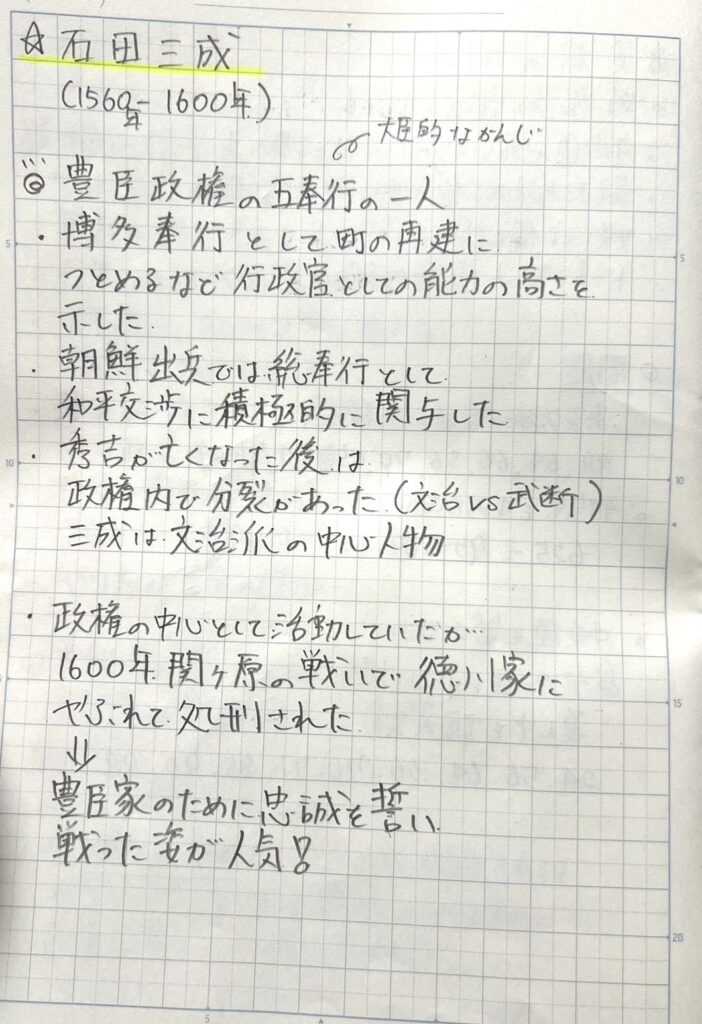 ☆ 石田三成
(1560年 - 1600年)
大臣的なかんじ
◎ 豊臣政権の五奉行の一人
・博多奉行として町の再建に
つとめるなど行政官としての能力の高さを
示した.
・朝鮮出兵では総奉行として
和平交渉に積極的に関与した
・秀吉が亡くなった後は
政権内で分裂があった.(文治vs武断)
三成は文治派の中心人物
・政権の中心として活動していたが…
1600年関ヶ原の戦いで徳川家に
やぶれて処刑された.
⇓
豊臣家のために忠誠を誓い
戦った姿が人気!
5
10
15
20
5
10
5